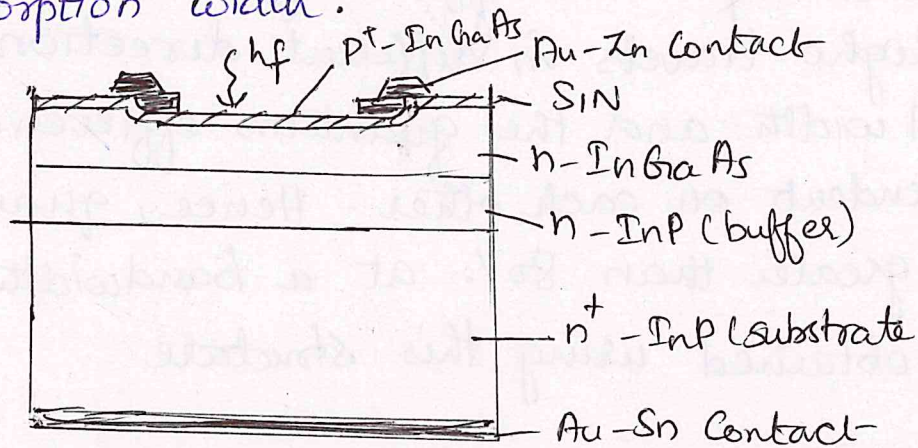 orption width.
hf
p+-InGaAs
Au-Zn Contact
SiN
n-InGaAs
n-InP (buffer)
n+-InP (substrate
Au-Sn Contact